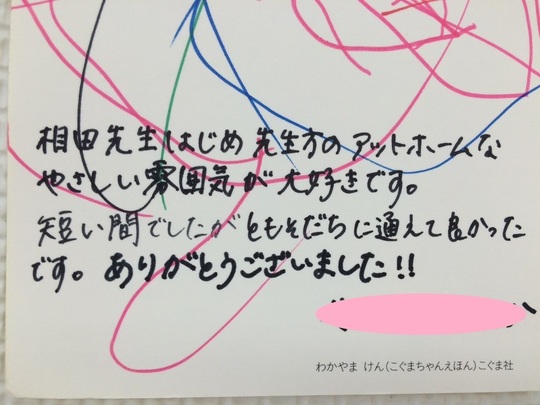 相田先生はじめ 先生方の アットホームな
やさしい雰囲気が大好きです。
短い間でしたがともそだちに通えて良かった
です。ありがとうございました!!
わかやま けん(こぐまちゃんえほん)こぐま社